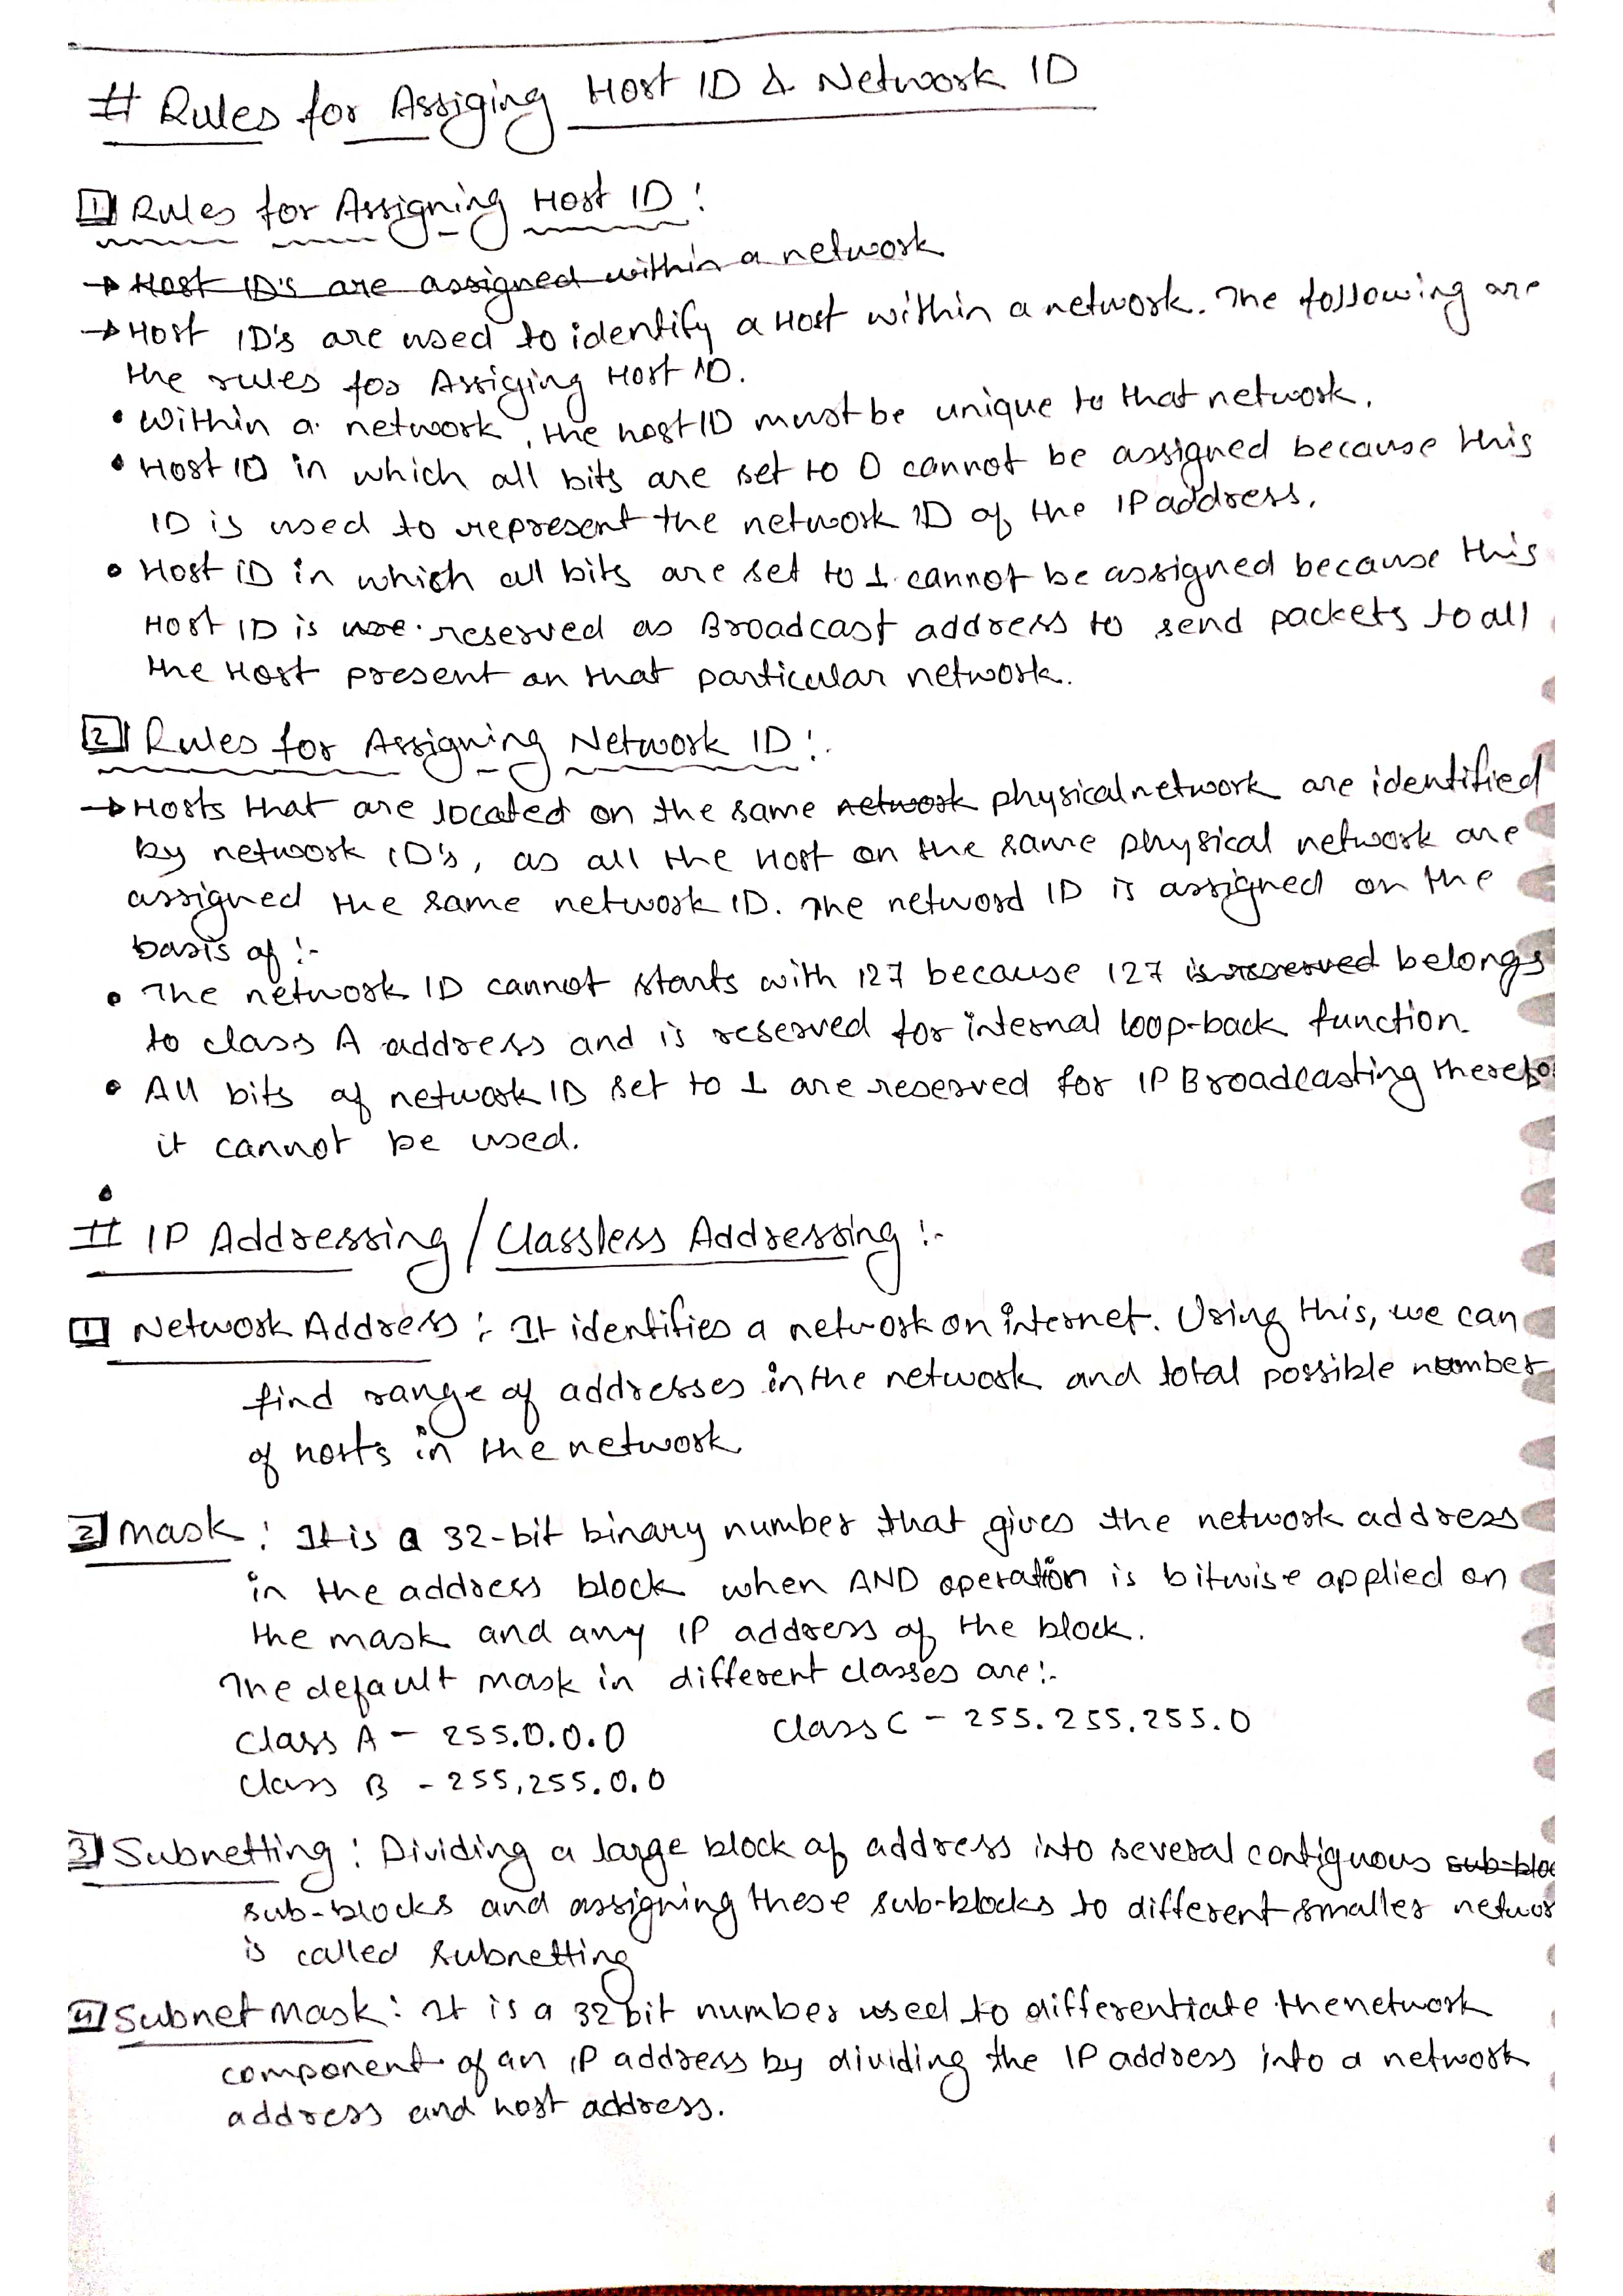 # Rules for Assiging Host ID & Network ID
1 Rules for Assigning Host ID :
→ Host ID's are assigned within a network
→ Host ID's are used to identify a Host within a network. The following are
the rules for Assiging Host ID.
• Within a network, the host ID must be unique to that network.
• Host ID in which all bits are set to 0 cannot be assigned because this
ID is used to represent the network ID of the IP address.
• Host ID in which all bits are set to 1 cannot be assigned because this
Host ID is reserved as Broadcast address to send packets to all
the Host present on that particular network.
2 Rules for Assigning Network ID :-
→ Hosts that are located on the same network physical network are identified
by network ID's, as all the Host on the same physical network are
assigned the same network ID. The netword ID is assigned on the
basis of :-
• The network ID cannot starts with 127 because 127 is reserved belongs
to class A address and is reserved for internal loop-back function
• All bits of network ID set to 1 are reserved for IP Broadcasting therefo
it cannot be used.
•
# IP Addressing / Classless Addressing :-
1 Network Address : It identifies a network on internet. Using this, we can
find range of addresses in the network and total possible number
of hosts in the network
2 Mask : It is a 32-bit binary number that gives the network address
in the address block when AND operation is bitwise applied on
the mask and any IP address of the block.
The default mask in different classes are :-
Class A - 255.0.0.0 Class C - 255.255.255.0
Class B - 255.255.0.0
3 Subnetting : Dividing a large block of address into several contiguous sub-bloc
sub-blocks and assigning these sub-blocks to different smaller networ
is called subnetting
4 Subnet mask : It is a 32 bit number used to differentiate the network
component of an IP address by dividing the IP address into a network
address and host address.